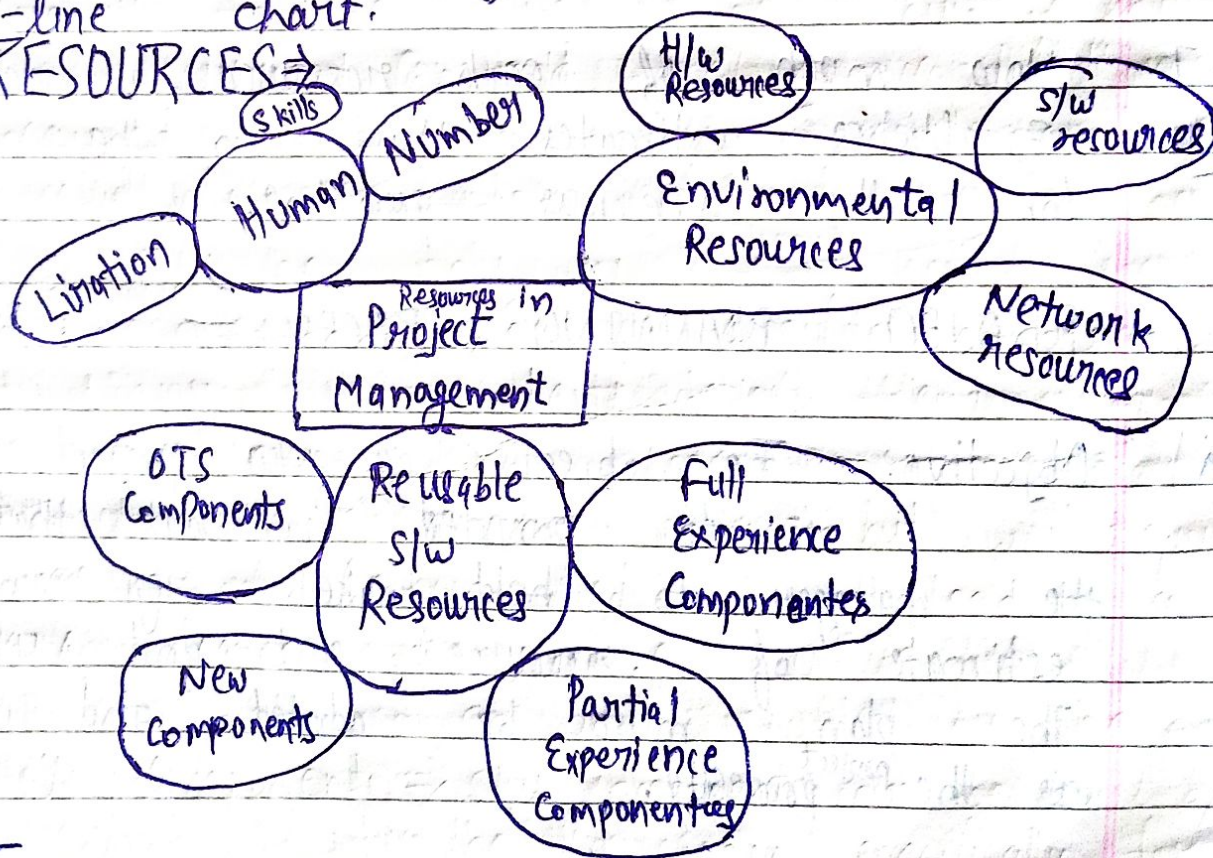 -line chart.
RESOURCES⇒
Skills
Number
Human
Liration
H/w
Resources
S/w
resources
Environmental
Resources
Network
resources
Resources in
Project
Management
OTS
Components
Reusable
S/w
Resources
Full
Experience
Componentes
New
Components
Partial
Experience
Componentes